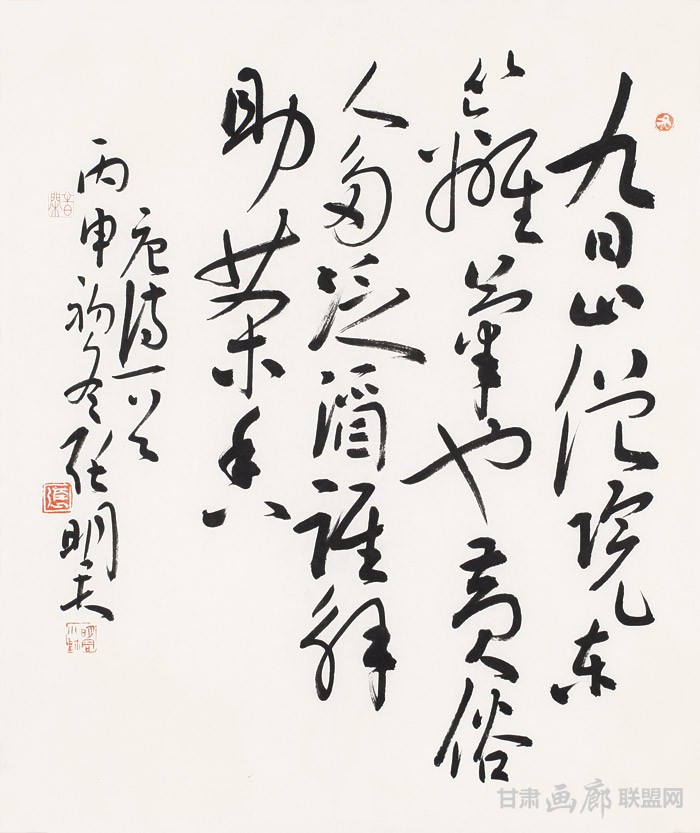 九日山僧院东
篱菊也黄俗
人多泛酒谁解
助茶香
唐诗一首
丙申初冬张明
甘肃画廊联盟网